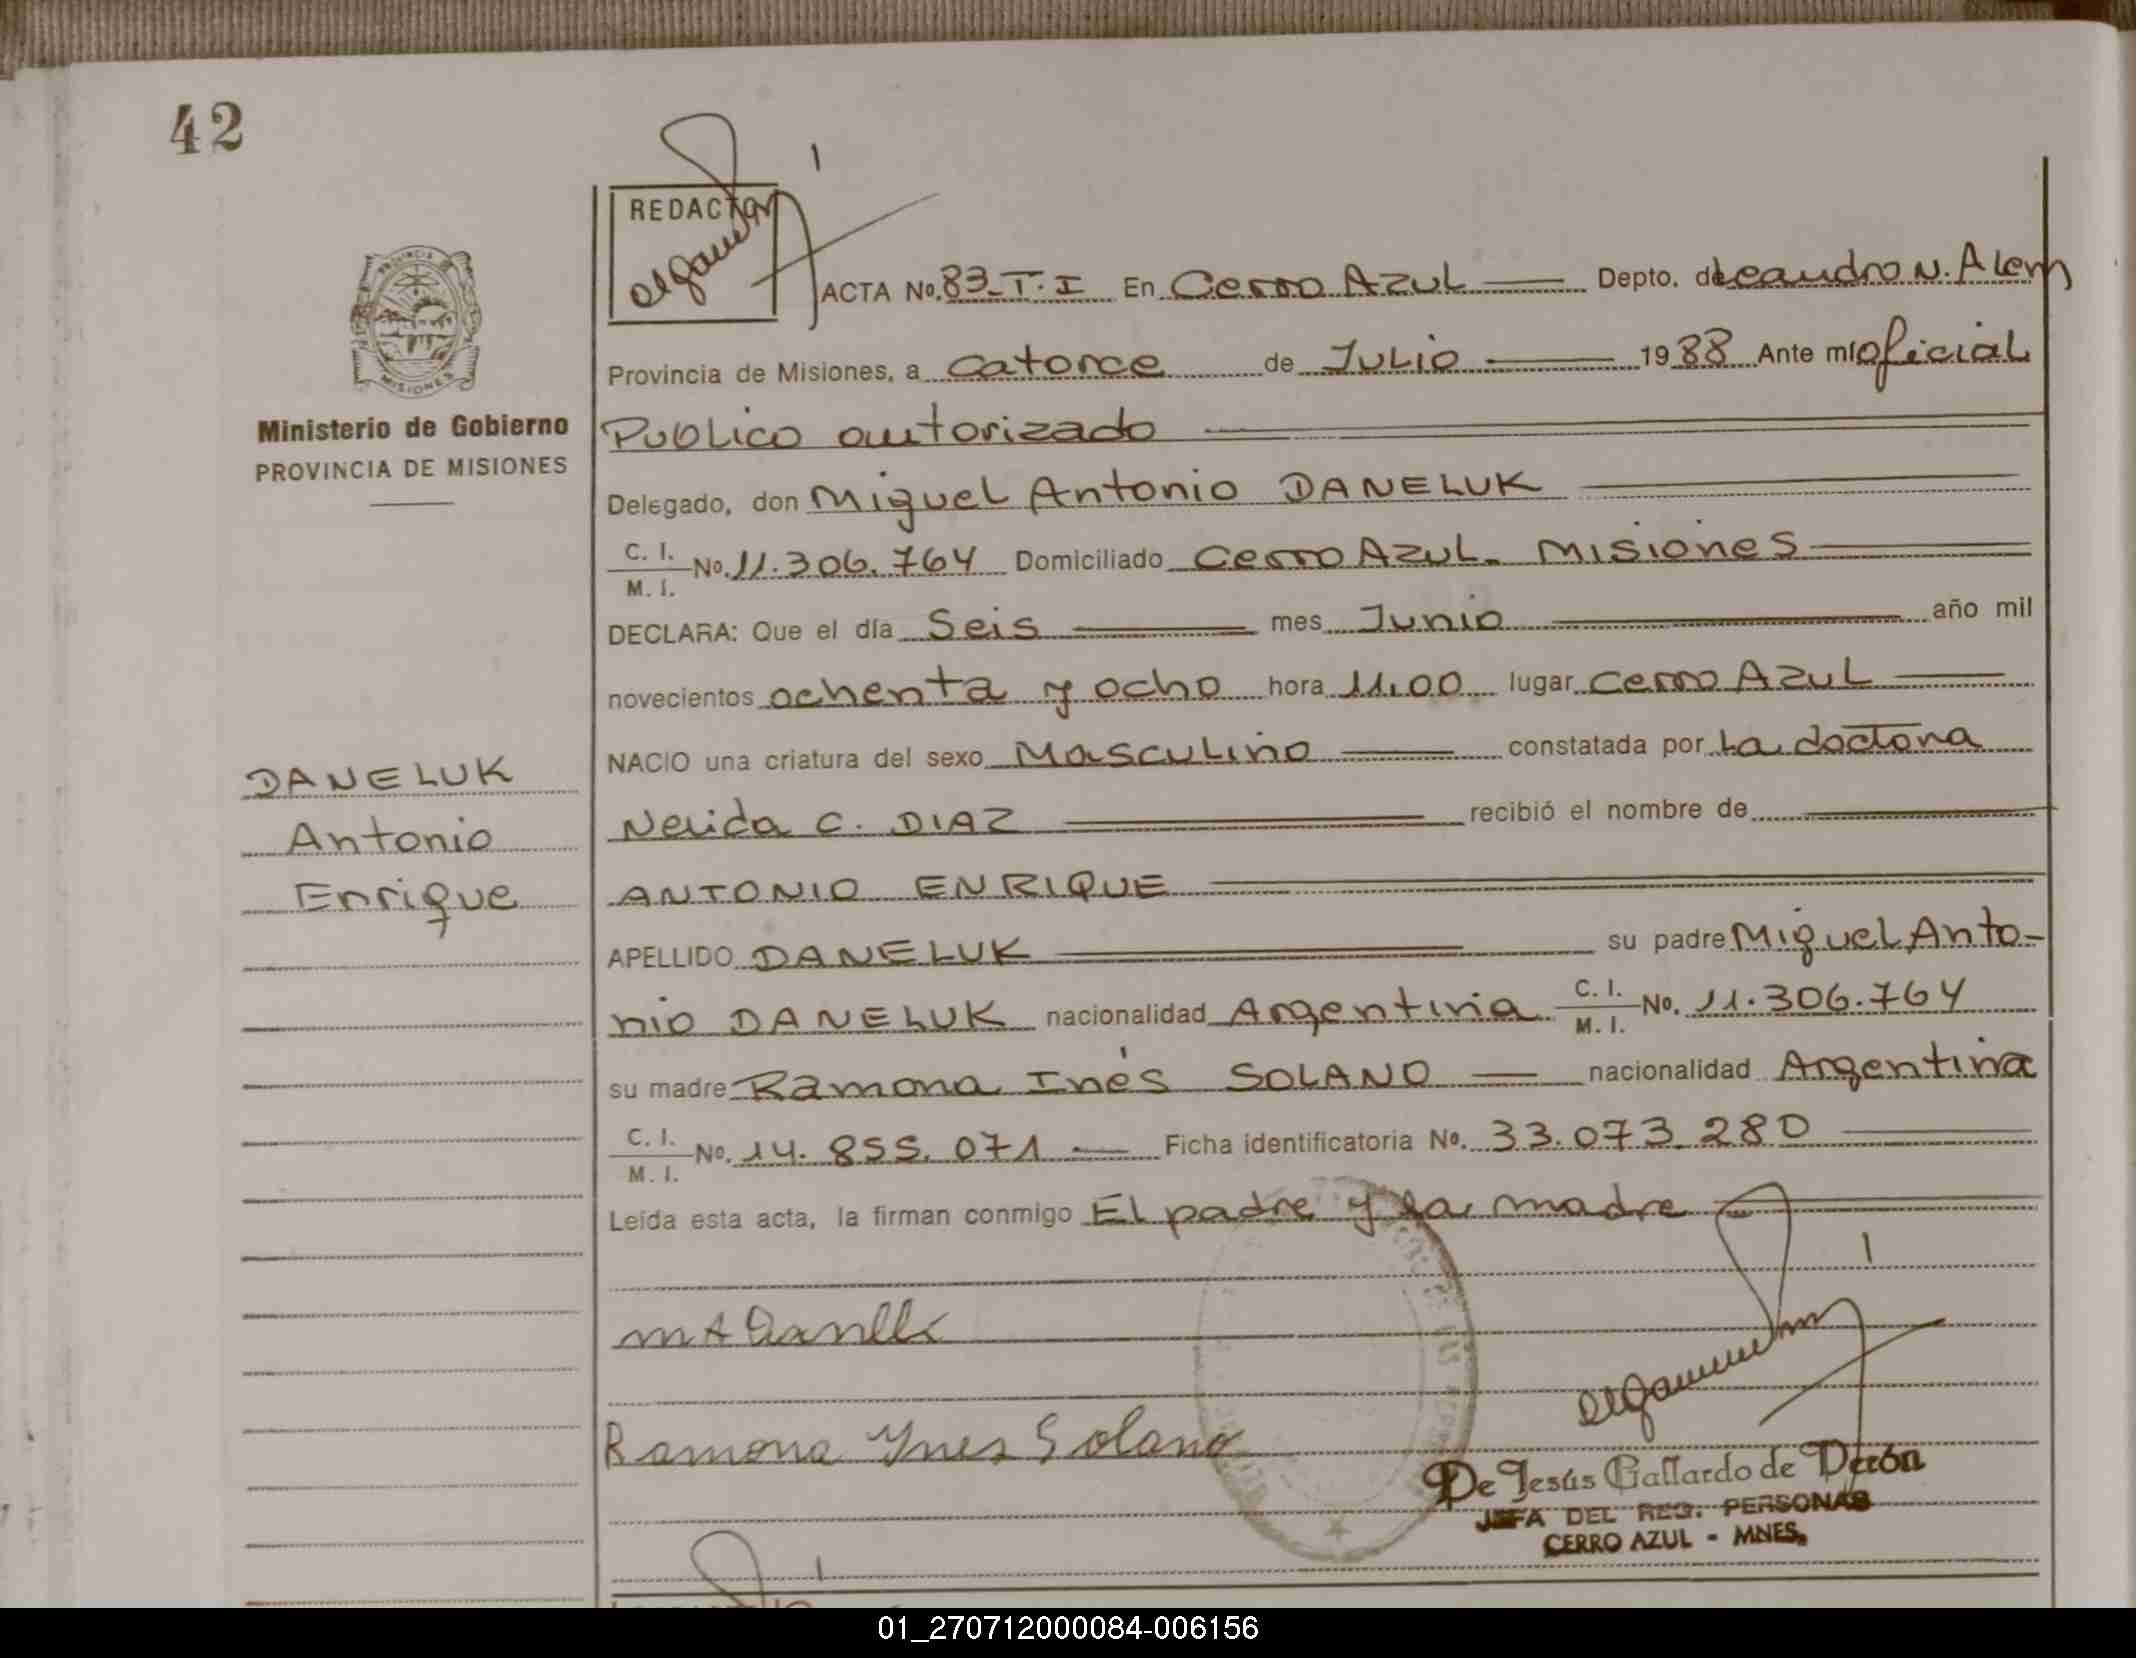 42
REDACTOR
ACTA No. 83-T.I En Cerro Azul Depto. de Leandro N. Alem
Provincia de Misiones, a catorce de Julio 1988 Ante mí oficial
Publico autorizado
Delegado, don Miguel Antonio DANELUK
C. I.
M. I.
No. 11.306.764 Domiciliado Cerro Azul. Misiones
DECLARA: Que el día Seis mes Junio año mil
novecientos ochenta y ocho hora 11.00 lugar Cerro Azul
NACIO una criatura del sexo Masculino constatada por La doctora
Nerida C. DIAZ recibió el nombre de
ANTONIO ENRIQUE
APELLIDO DANELUK su padre Miguel Anto-
nio DANELUK nacionalidad Argentina C. I. M. I. No. 11.306.764
su madre Ramona Inés SOLANO nacionalidad Argentina
C. I.
M. I.
No. 14.855.071 Ficha identificatoria No. 33.073.280
Leída esta acta, la firman conmigo El padre y la madre
Ramona Ynes Solano
De Jesús Gallardo de Perón
JEFA DEL REG. PERSONAS
CERRO AZUL - MNES.
PROVINCIA
MISIONES
Ministerio de Gobierno
PROVINCIA DE MISIONES
DANELUK
Antonio
Enrique
01_270712000084-006156